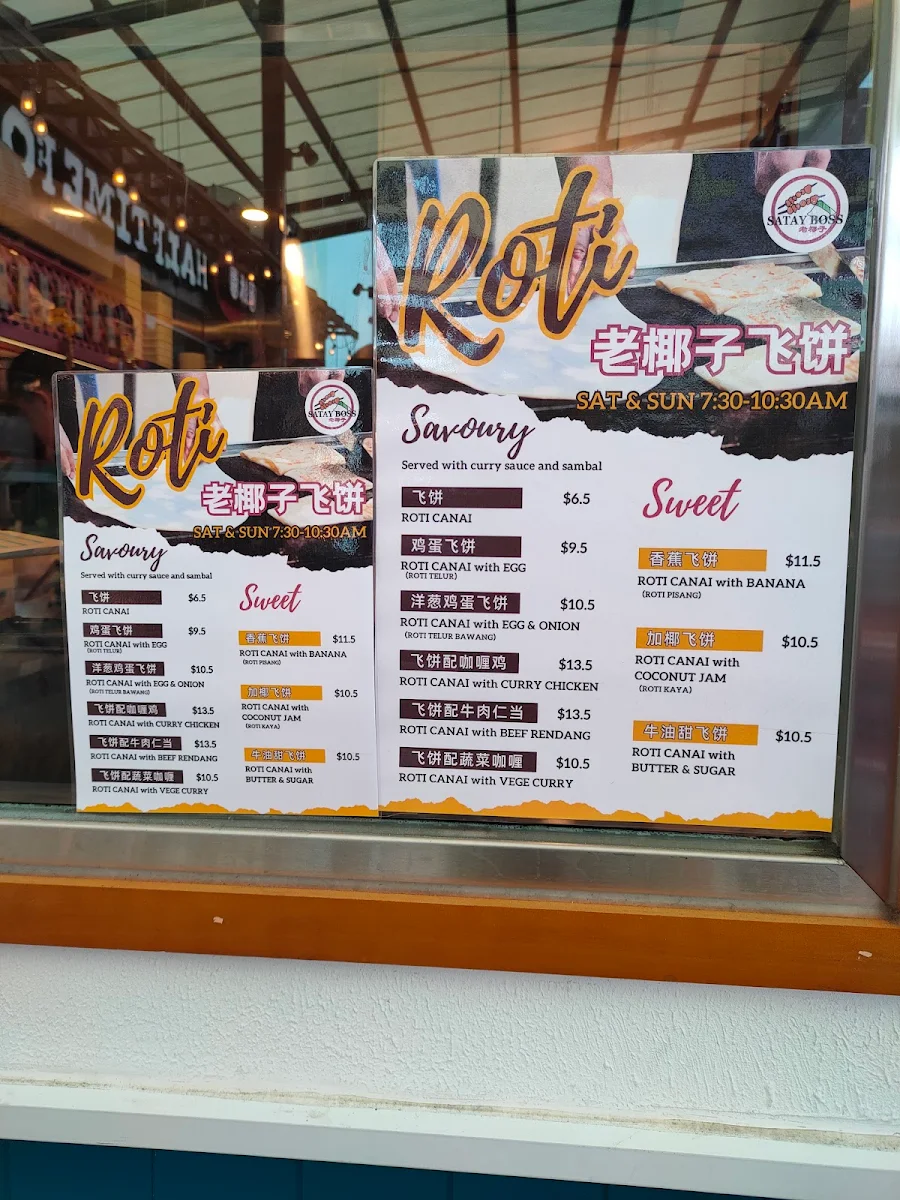 HALFTIME FO
Roti
SATAY BOSS
老椰子
老椰子飞饼
SAT & SUN 7:30-10:30AM
Savoury
Served with curry sauce and sambal
飞饼 $6.5
ROTI CANAI
鸡蛋飞饼 $9.5
ROTI CANAI with EGG
(ROTI TELUR)
洋葱鸡蛋飞饼 $10.5
ROTI CANAI with EGG & ONION
(ROTI TELUR BAWANG)
飞饼配咖喱鸡 $13.5
ROTI CANAI with CURRY CHICKEN
飞饼配牛肉仁当 $13.5
ROTI CANAI with BEEF RENDANG
飞饼配蔬菜咖喱 $10.5
ROTI CANAI with VEGE CURRY
Sweet
香蕉飞饼 $11.5
ROTI CANAI with BANANA
(ROTI PISANG)
加椰飞饼 $10.5
ROTI CANAI with
COCONUT JAM
(ROTI KAYA)
牛油甜飞饼 $10.5
ROTI CANAI with
BUTTER & SUGAR
Roti
SATAY BOSS
老椰子
老椰子飞饼
SAT & SUN 7:30-10:30AM
Savoury
Served with curry sauce and sambal
飞饼 $6.5
ROTI CANAI
鸡蛋飞饼 $9.5
ROTI CANAI with EGG
(ROTI TELUR)
洋葱鸡蛋飞饼 $10.5
ROTI CANAI with EGG & ONION
(ROTI TELUR BAWANG)
飞饼配咖喱鸡 $13.5
ROTI CANAI with CURRY CHICKEN
飞饼配牛肉仁当 $13.5
ROTI CANAI with BEEF RENDANG
飞饼配蔬菜咖喱 $10.5
ROTI CANAI with VEGE CURRY
Sweet
香蕉飞饼 $11.5
ROTI CANAI with BANANA
(ROTI PISANG)
加椰飞饼 $10.5
ROTI CANAI with
COCONUT JAM
(ROTI KAYA)
牛油甜飞饼 $10.5
ROTI CANAI with
BUTTER & SUGAR